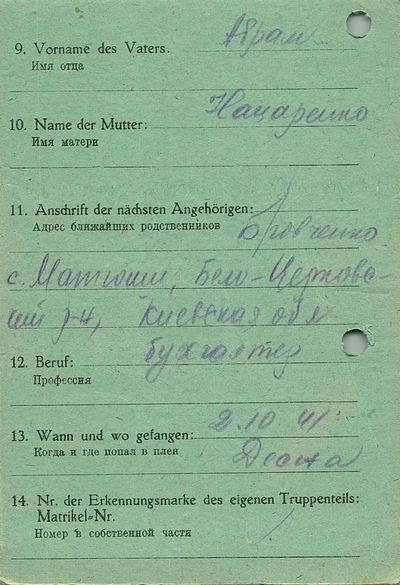 9. Vorname des Vaters. Абрам
Имя отца
Нацаренко
10. Name der Mutter:
Имя матери
11. Anschrift der nächsten Angehörigen:
Адрес ближайших родственников Бровченко
с. Матюши, Бело-Церковс-
кий р-н, Киевская обл
12. Beruf: бухгалтер
Профессия
13. Wann und wo gefangen: 2.10 41
Когда и где попал в плен Десна
14. Nr. der Erkennungsmarke des eigenen Truppenteils:
Matrikel=Nr.
Номер в собственной части